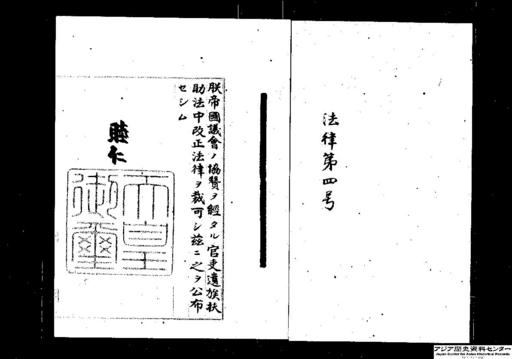 法律第四号
朕帝國議會ノ協賛ヲ經タル官吏遺族扶
助法中改正法律ヲ裁可シ茲ニ之ヲ公布
セシム
睦仁
天皇
御璽
アジア歴史資料センター
Japan Center for Asian Historical Records